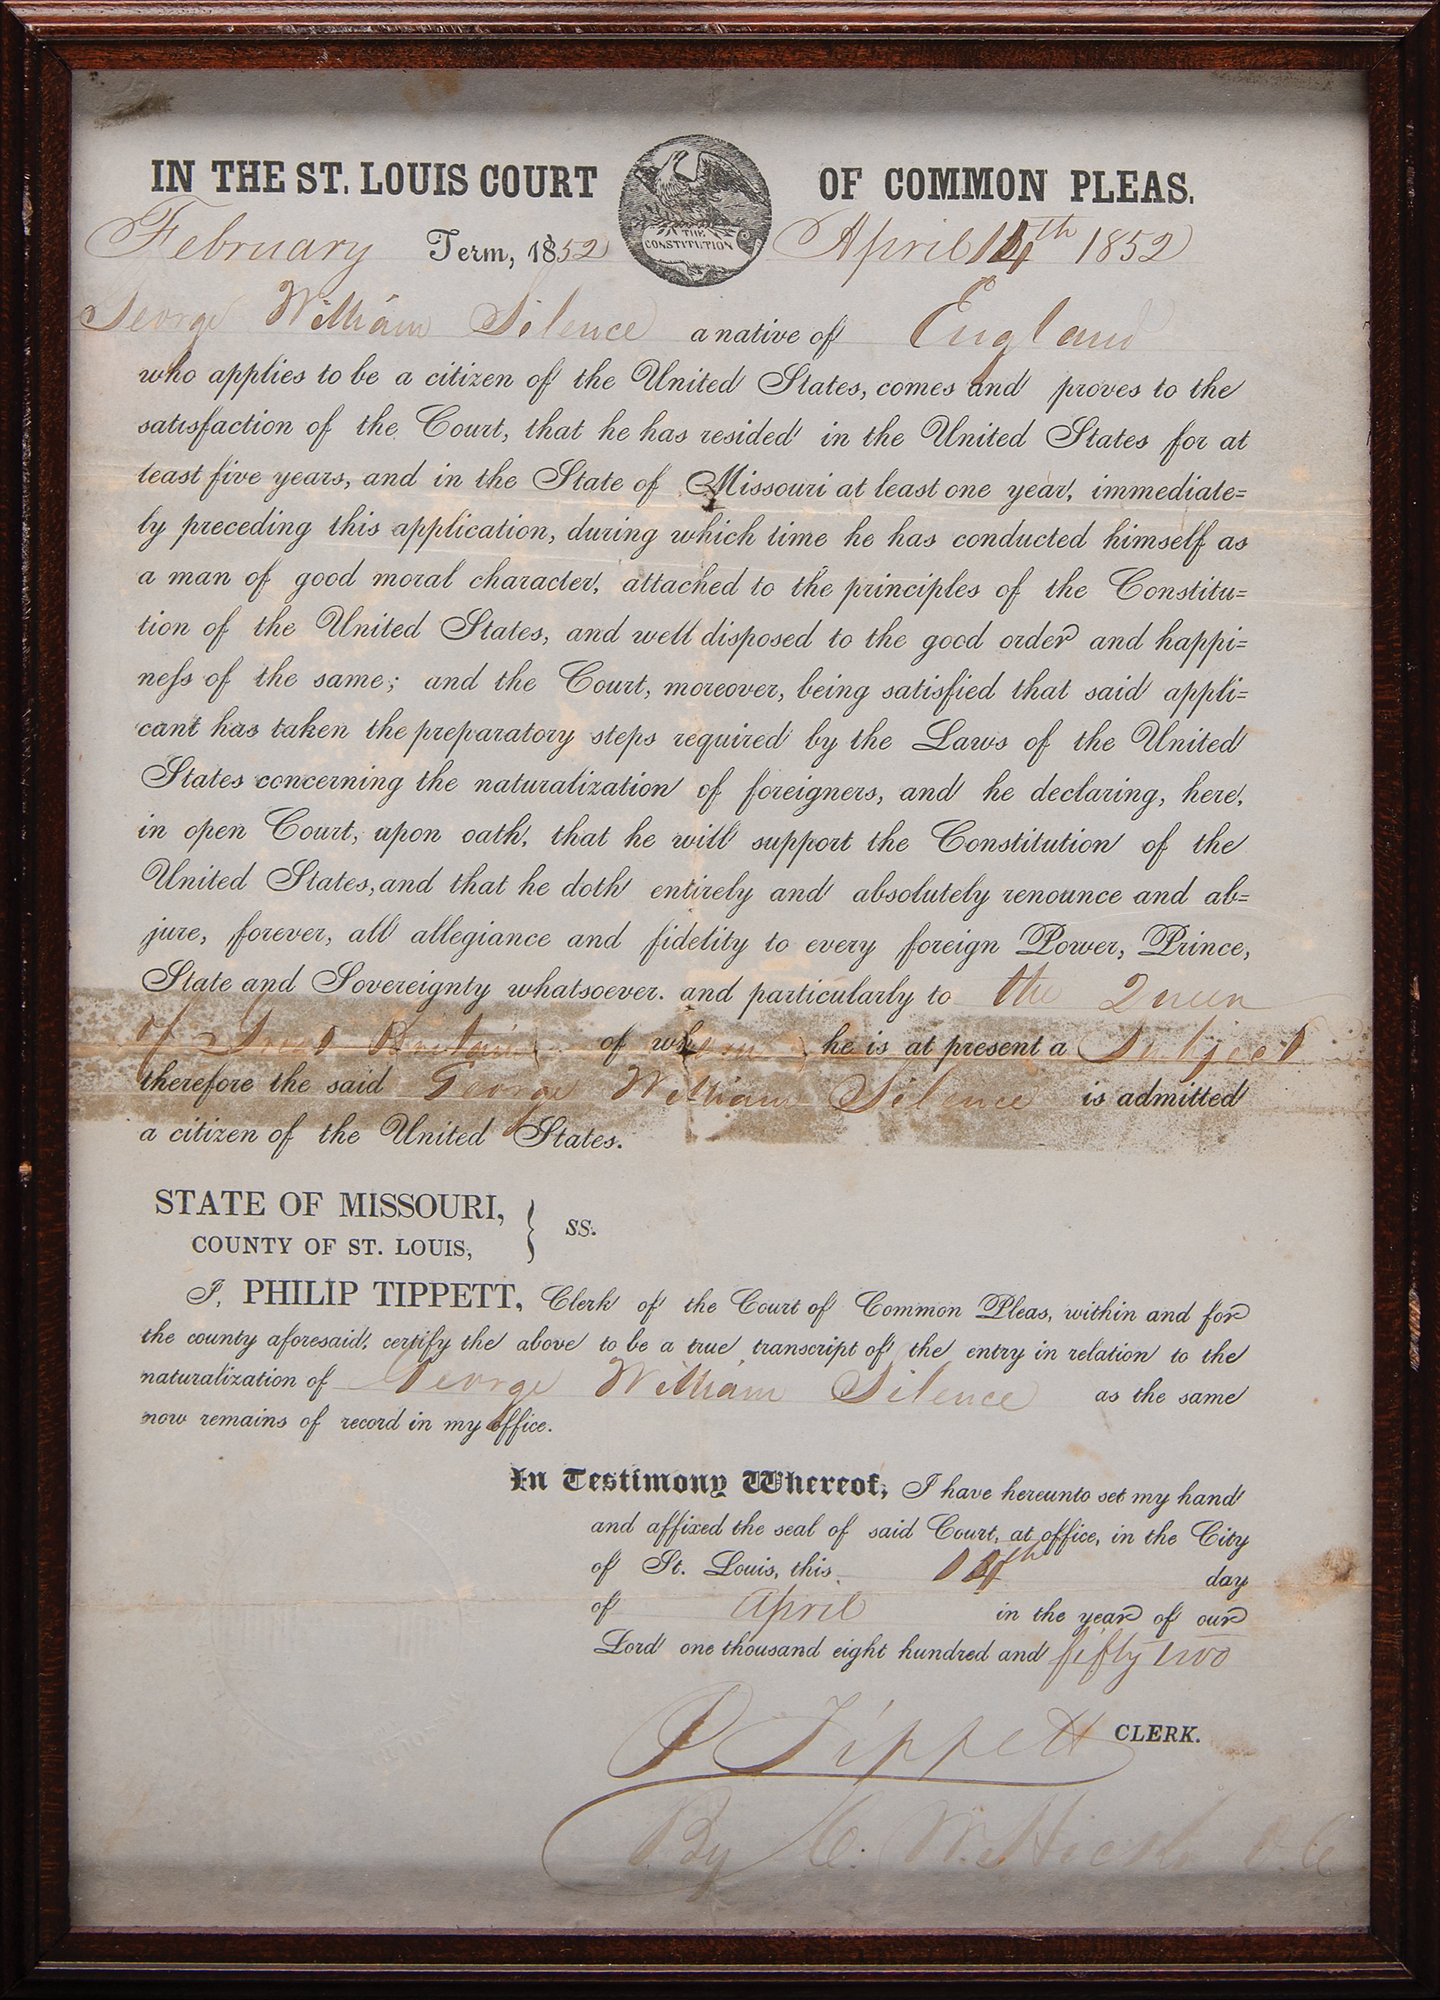 IN THE ST. LOUIS COURT OF COMMON PLEAS.
THE
CONSTITUTION
February Term, 1852 April 14th 1852
George William Silence a native of England
who applies to be a citizen of the United States, comes and proves to the
satisfaction of the Court, that he has resided in the United States for at
least five years, and in the State of Missouri at least one year, immediate=
ly preceding this application, during which time he has conducted himself as
a man of good moral character, attached to the principles of the Constitu=
tion of the United States, and well disposed to the good order and happi=
neſs of the same; and the Court, moreover, being satisfied that said appli=
cant has taken the preparatory steps required by the Laws of the United
States concerning the naturalization of foreigners, and he declaring, here,
in open Court, upon oath, that he will support the Constitution of the
United States, and that he doth entirely and absolutely renounce and ab=
jure, forever, all allegiance and fidelity to every foreign Power, Prince,
State and Sovereignty whatsoever. and particularly to the Queen
of Great Britain of whom he is at present a Subject
therefore the said George William Silence is admitted
a citizen of the United States.
STATE OF MISSOURI,
COUNTY OF ST. LOUIS, } SS.
I, PHILIP TIPPETT, Clerk of the Court of Common Pleas, within and for
the county aforesaid, certify the above to be a true transcript of the entry in relation to the
naturalization of George William Silence as the same
now remains of record in my office.
In Testimony Whereof, I have hereunto set my hand
and affixed the seal of said Court, at office, in the City
of St. Louis, this 14th day
of April in the year of our
Lord one thousand eight hundred and fifty two
P Tippett CLERK.
By C. W. Hicks D. C.